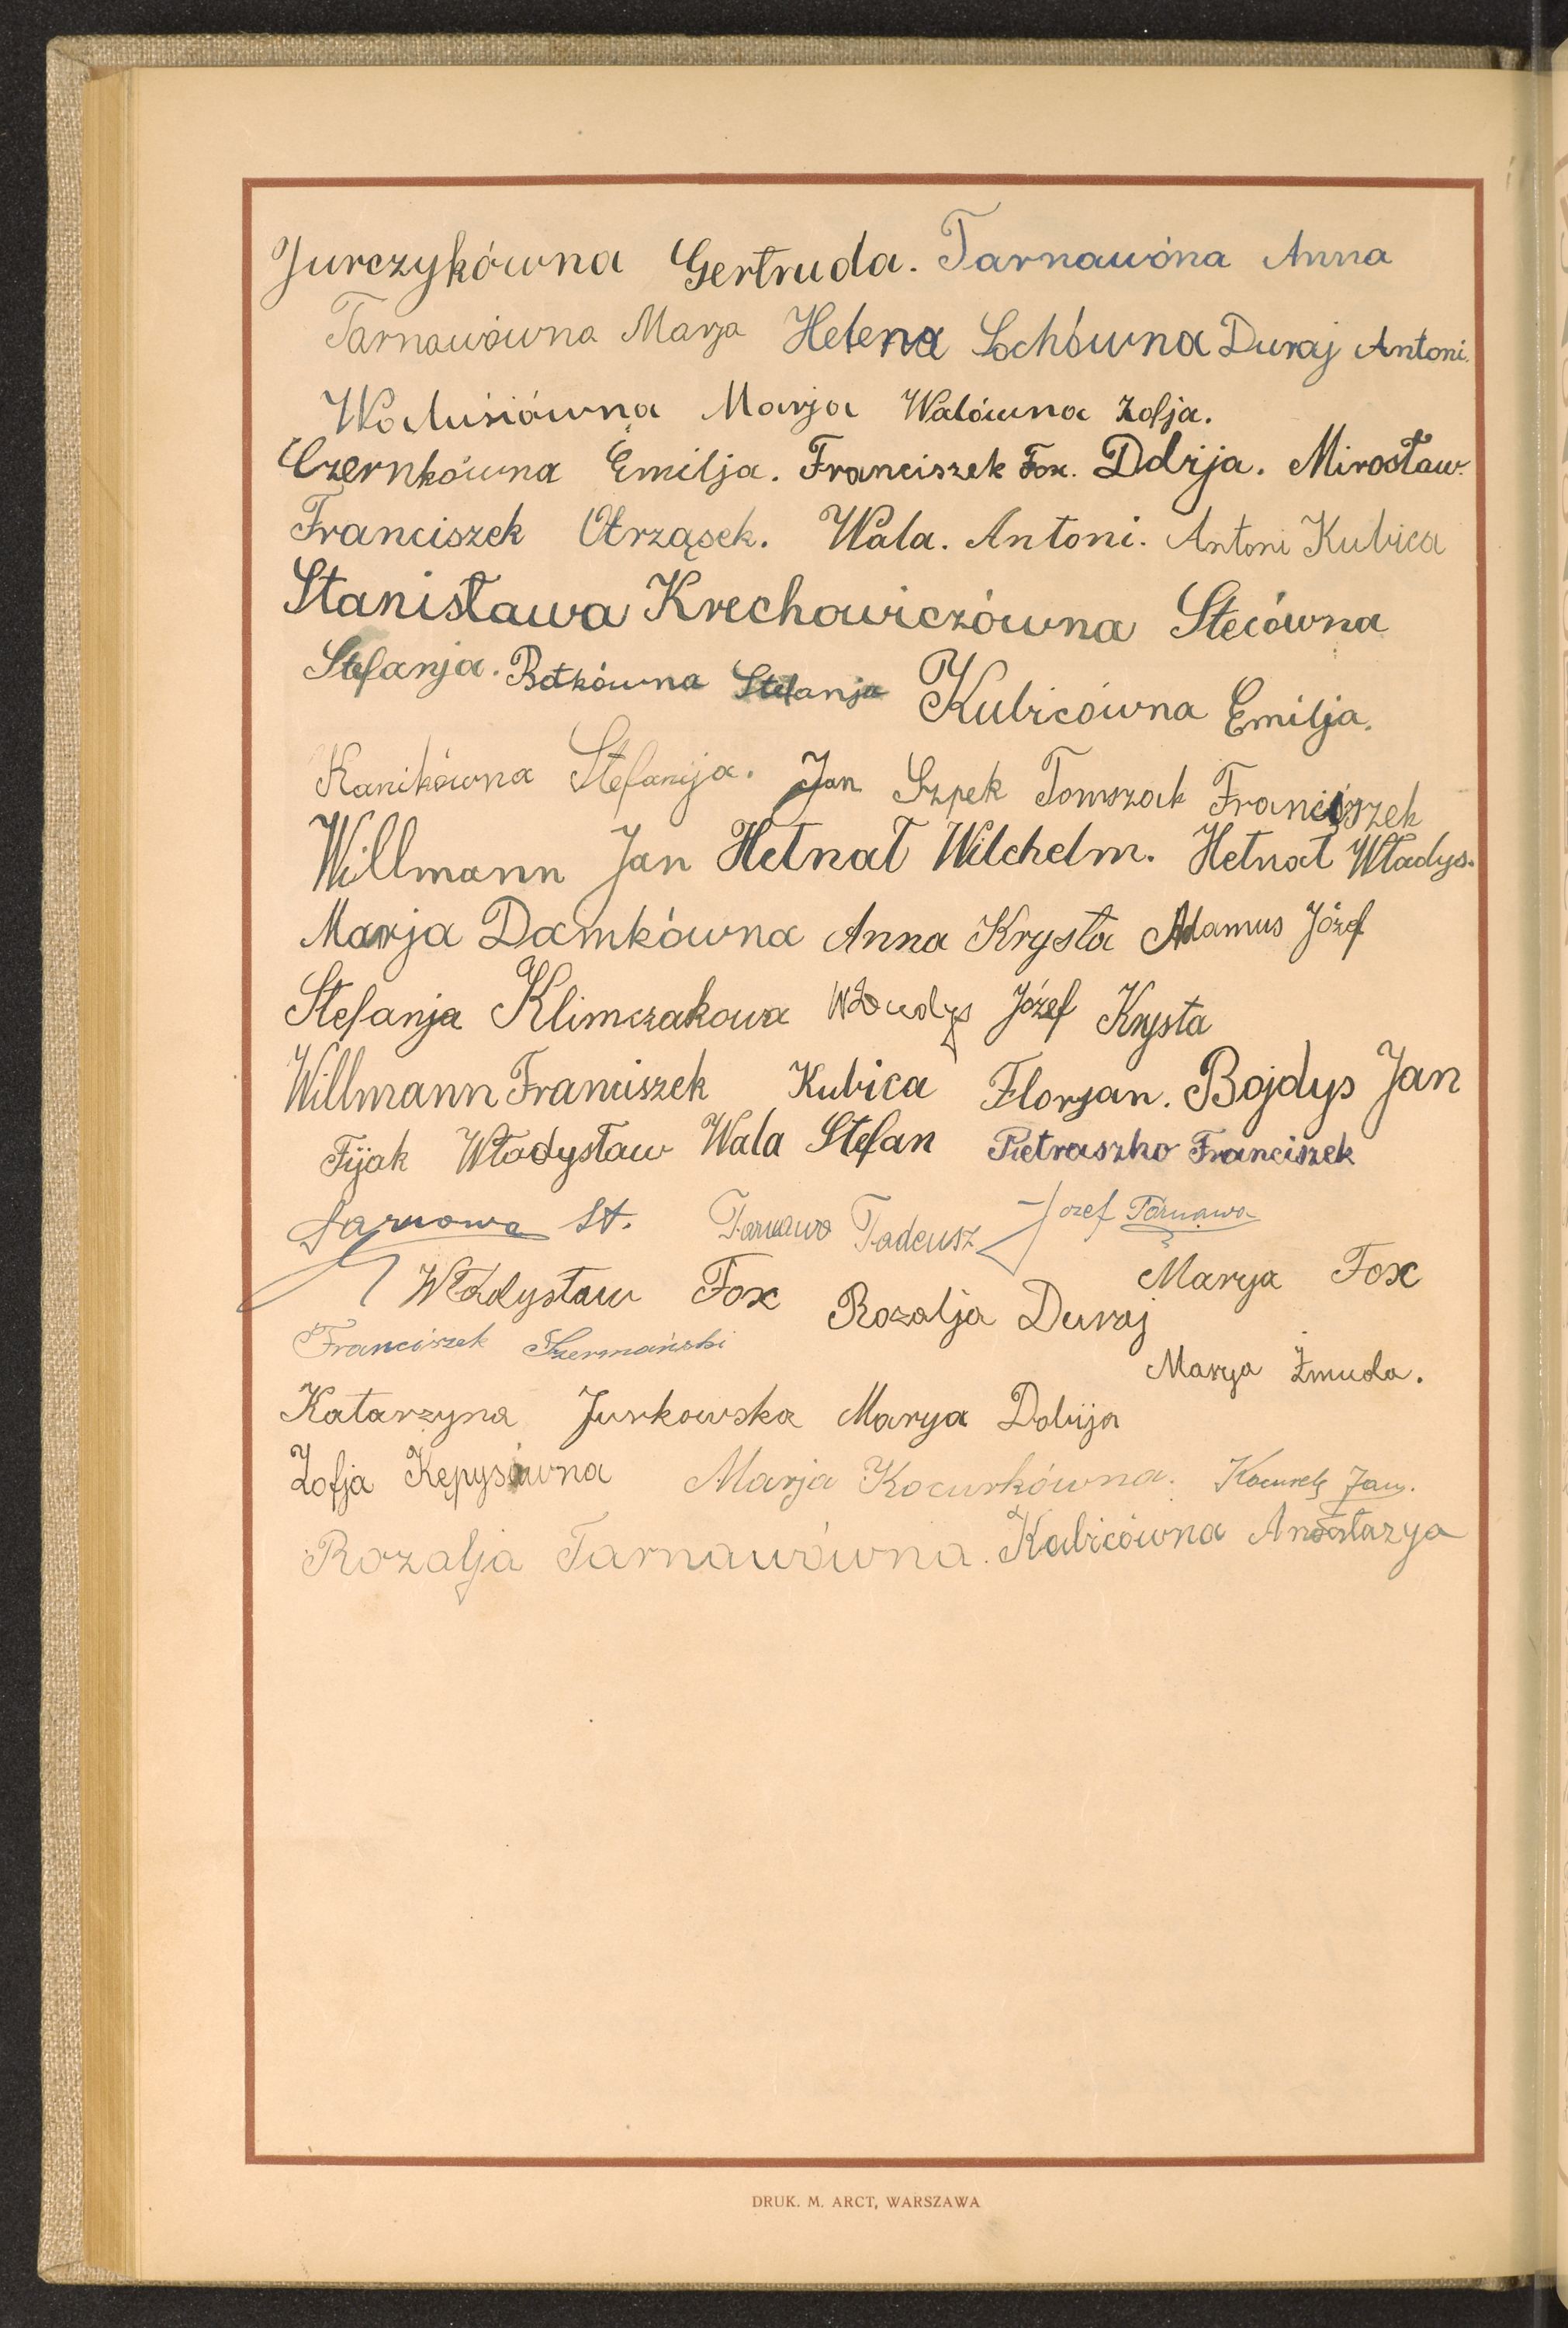 Jurczykówna Gertruda. Tarnawóna Anna
Tarnawówna Marja Helena Sochówna Duraj Antoni.
Walusiówna Marja Walówna Zofja.
Czernkówna Emilja. Franciszek Fox. Dobija. Mirosław.
Franciszek Otrząsek. Wala. Antoni. Antoni Kubica
Stanisława Krechowiczówna Stecówna
Stefanja. Botkówna Stefanja Kubicówna Emilja.
Kanikówna Stefanija. Jan Szpek Tomszak Franciszek
Willmann Jan Hetnał Wilchelm. Hetnał Władys.
Marja Damkówna Anna Krysta Adamus Józef
Stefanja Klimczakowa Józef Krysta
Willmann Franciszek Kubica Florjan. Bojdys Jan
Fijak Władysław Wala Stefan Pietraszko Franciszek
St. Tarnawa Tadeusz Jozef Tarnawa
Władysław Fox Rozalja Duraj Marya Fox
Franciszek Marya Żmuda.
Katarzyna Jurkowska Marya Dobija
Zofja Kępysówna Marja Kocurkówna. Jan.
Rozalja Tarnawówna. Kubicówna Anastazya
DRUK. M. ARCT, WARSZAWA